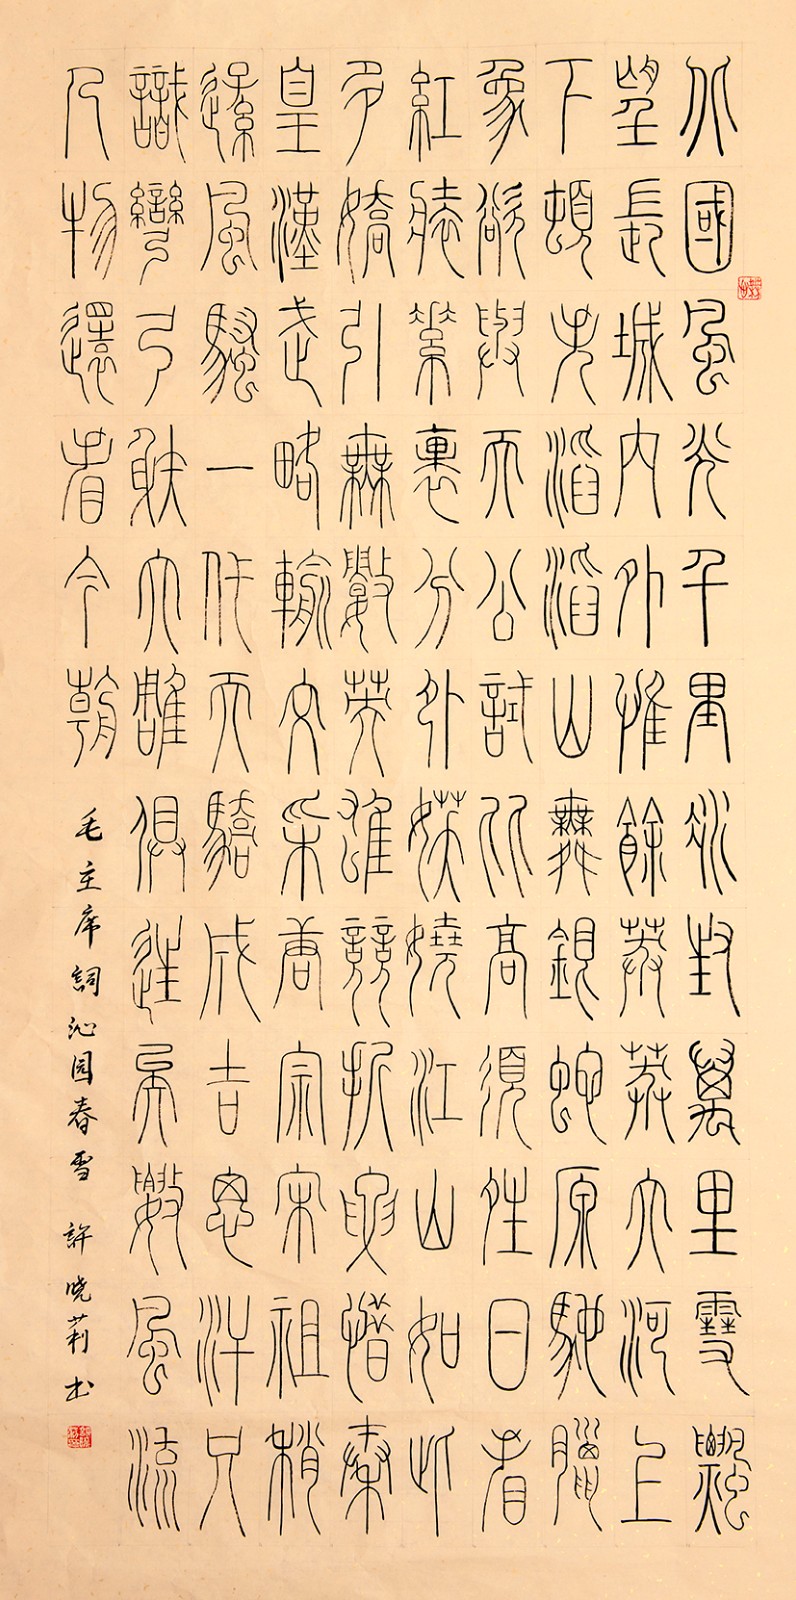 北國風光千里冰封萬里雪飄
望長城內外惟餘莽莽大河上
下頓失滔滔山舞銀蛇原馳臘
象欲與天公試比高須晴日看
紅裝素裹分外妖嬈江山如此
多嬌引無數英雄競折腰惜秦
皇漢武略輸文采唐宗宋祖稍
遜風騷一代天驕成吉思汗只
識彎弓射大雕俱往矣數風流
人物還看今朝
毛主席詞沁园春雪 許晓莉书